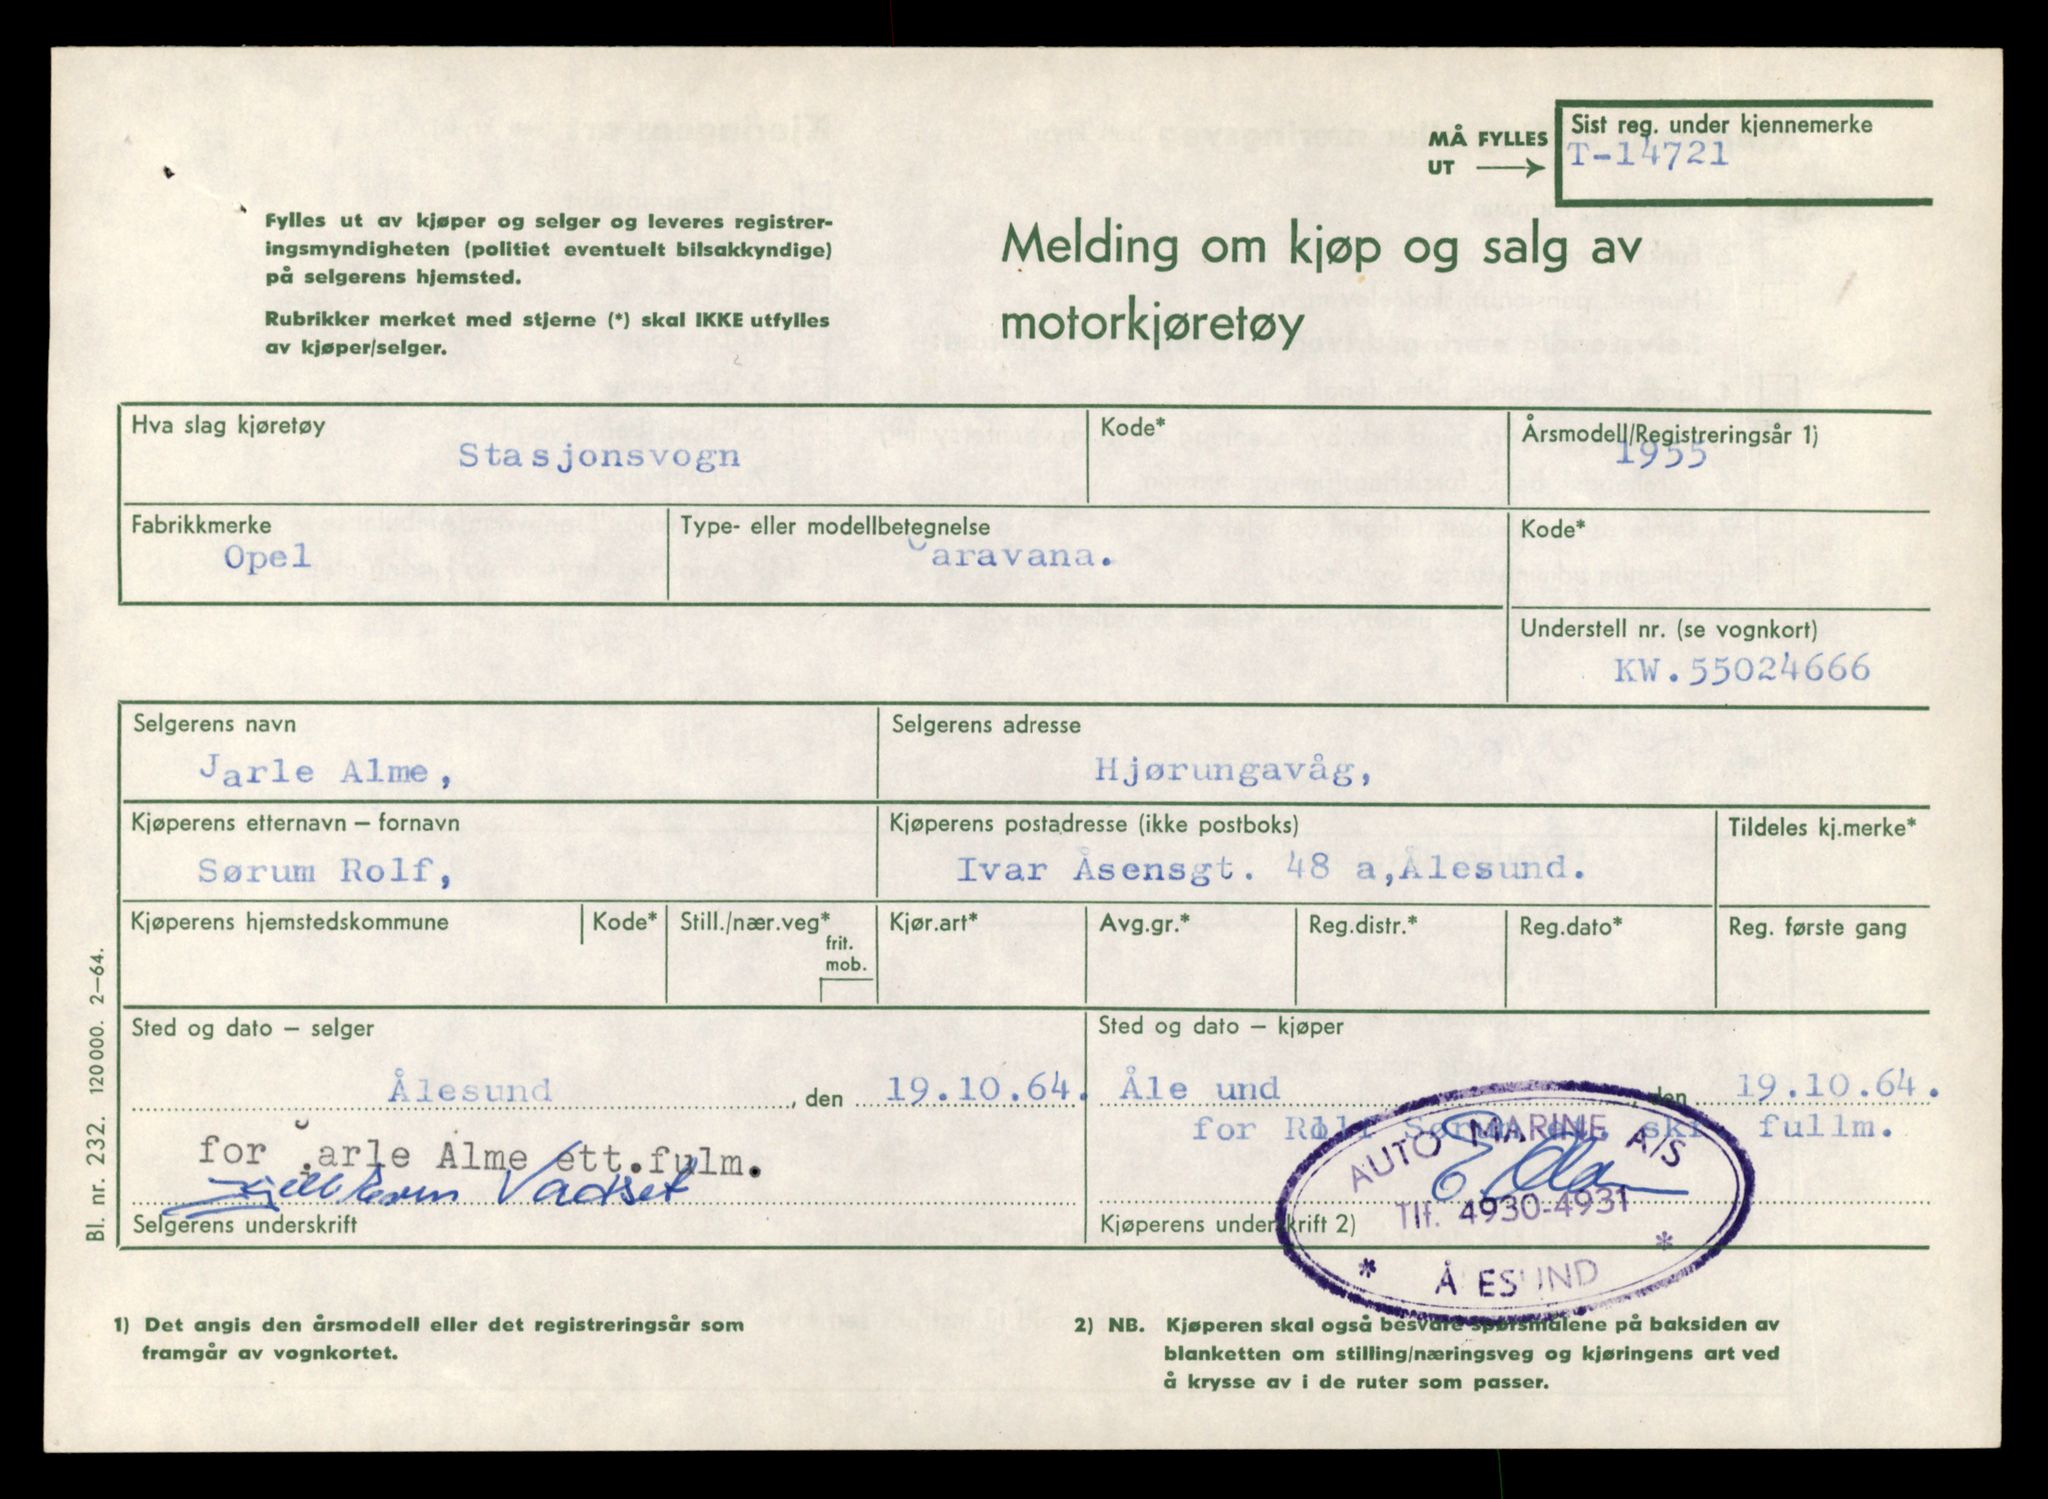 MÅ FYLLES
UT
Sist reg. under kjennemerke
T-14721
Fylles ut av kjøper og selger og leveres registrer-
ingsmyndigheten (politiet eventuelt bilsakkyndige)
på selgerens hjemsted.
Rubrikker merket med stjerne (*) skal IKKE utfylles
av kjøper/selger.
Melding om kjøp og salg av
motorkjøretøy
Hva slag kjøretøy
Stasjonsvogn
Kode*
Årsmodell/Registreringsår 1)
1955
Fabrikkmerke
Opel
Type- eller modellbetegnelse
Caravana.
Kode*
Understell nr. (se vognkort)
KW.55024666
Selgerens navn
Jarle Alme,
Selgerens adresse
Hjørungavåg,
Kjøperens etternavn – fornavn
Sørum Rolf,
Kjøperens postadresse (ikke postboks)
Ivar Åsensgt. 48 a,Ålesund.
Tildeles kj.merke*
Kjøperens hjemstedskommune
Kode*
Still./nær.veg*
frit.
mob.
Kjør.art*
Avg.gr.*
Reg.distr.*
Reg.dato*
Reg. første gang
Sted og dato – selger
Ålesund , den 19.10.64.
for Jarle Alme ett.fulm.
Vadset
Selgerens underskrift
Sted og dato – kjøper
Åle und , den 19.10.64.
for Rolf Sørum ski fullm.
Kjøperens underskrift 2)
AUTO MARINE A/S
Tlf. 4930-4931
* ÅLESUND *
1) Det angis den årsmodell eller det registreringsår som
framgår av vognkortet.
2) NB. Kjøperen skal også besvare spørsmålene på baksiden av
blanketten om stilling/næringsveg og kjøringens art ved
å krysse av i de ruter som passer.
Bl. nr. 232. 120 000. 2–64.